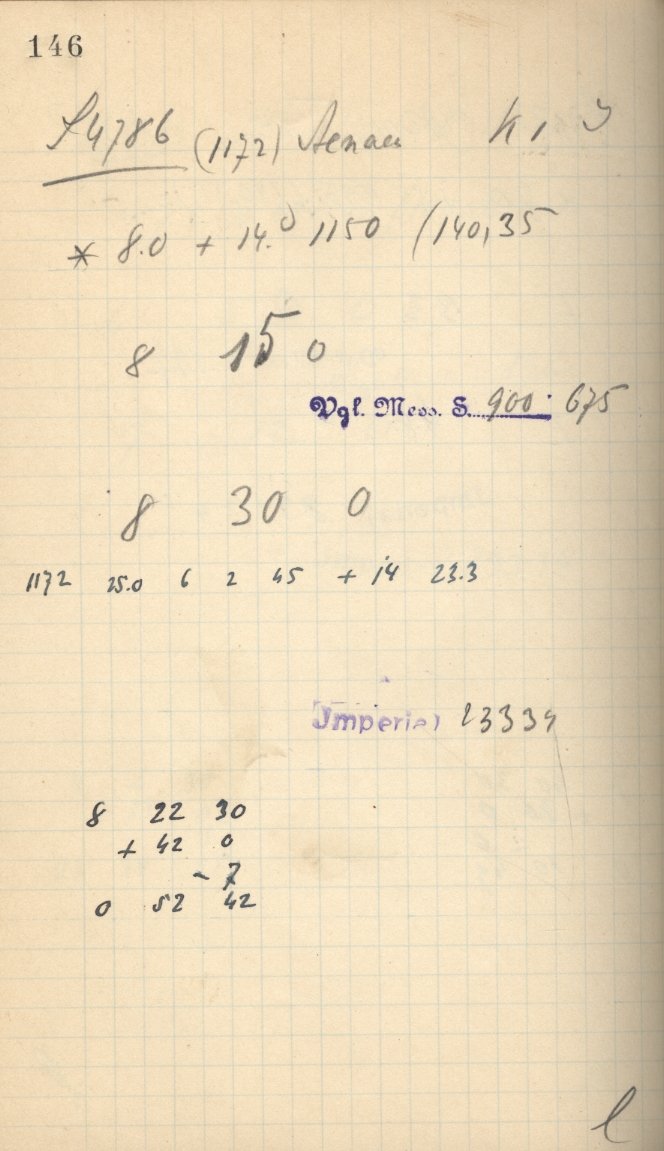 146
S4786 (1172) Aenaes K
* 8.0 + 14.0 1150 (140,35
8 15 0
Vgl. Mess. S. 900 675
8 30 0
1172 25.0 6 2 45 + 14 23.3
Imperial 23334
8 22 30
+ 42 0
- 7
0 52 42
l